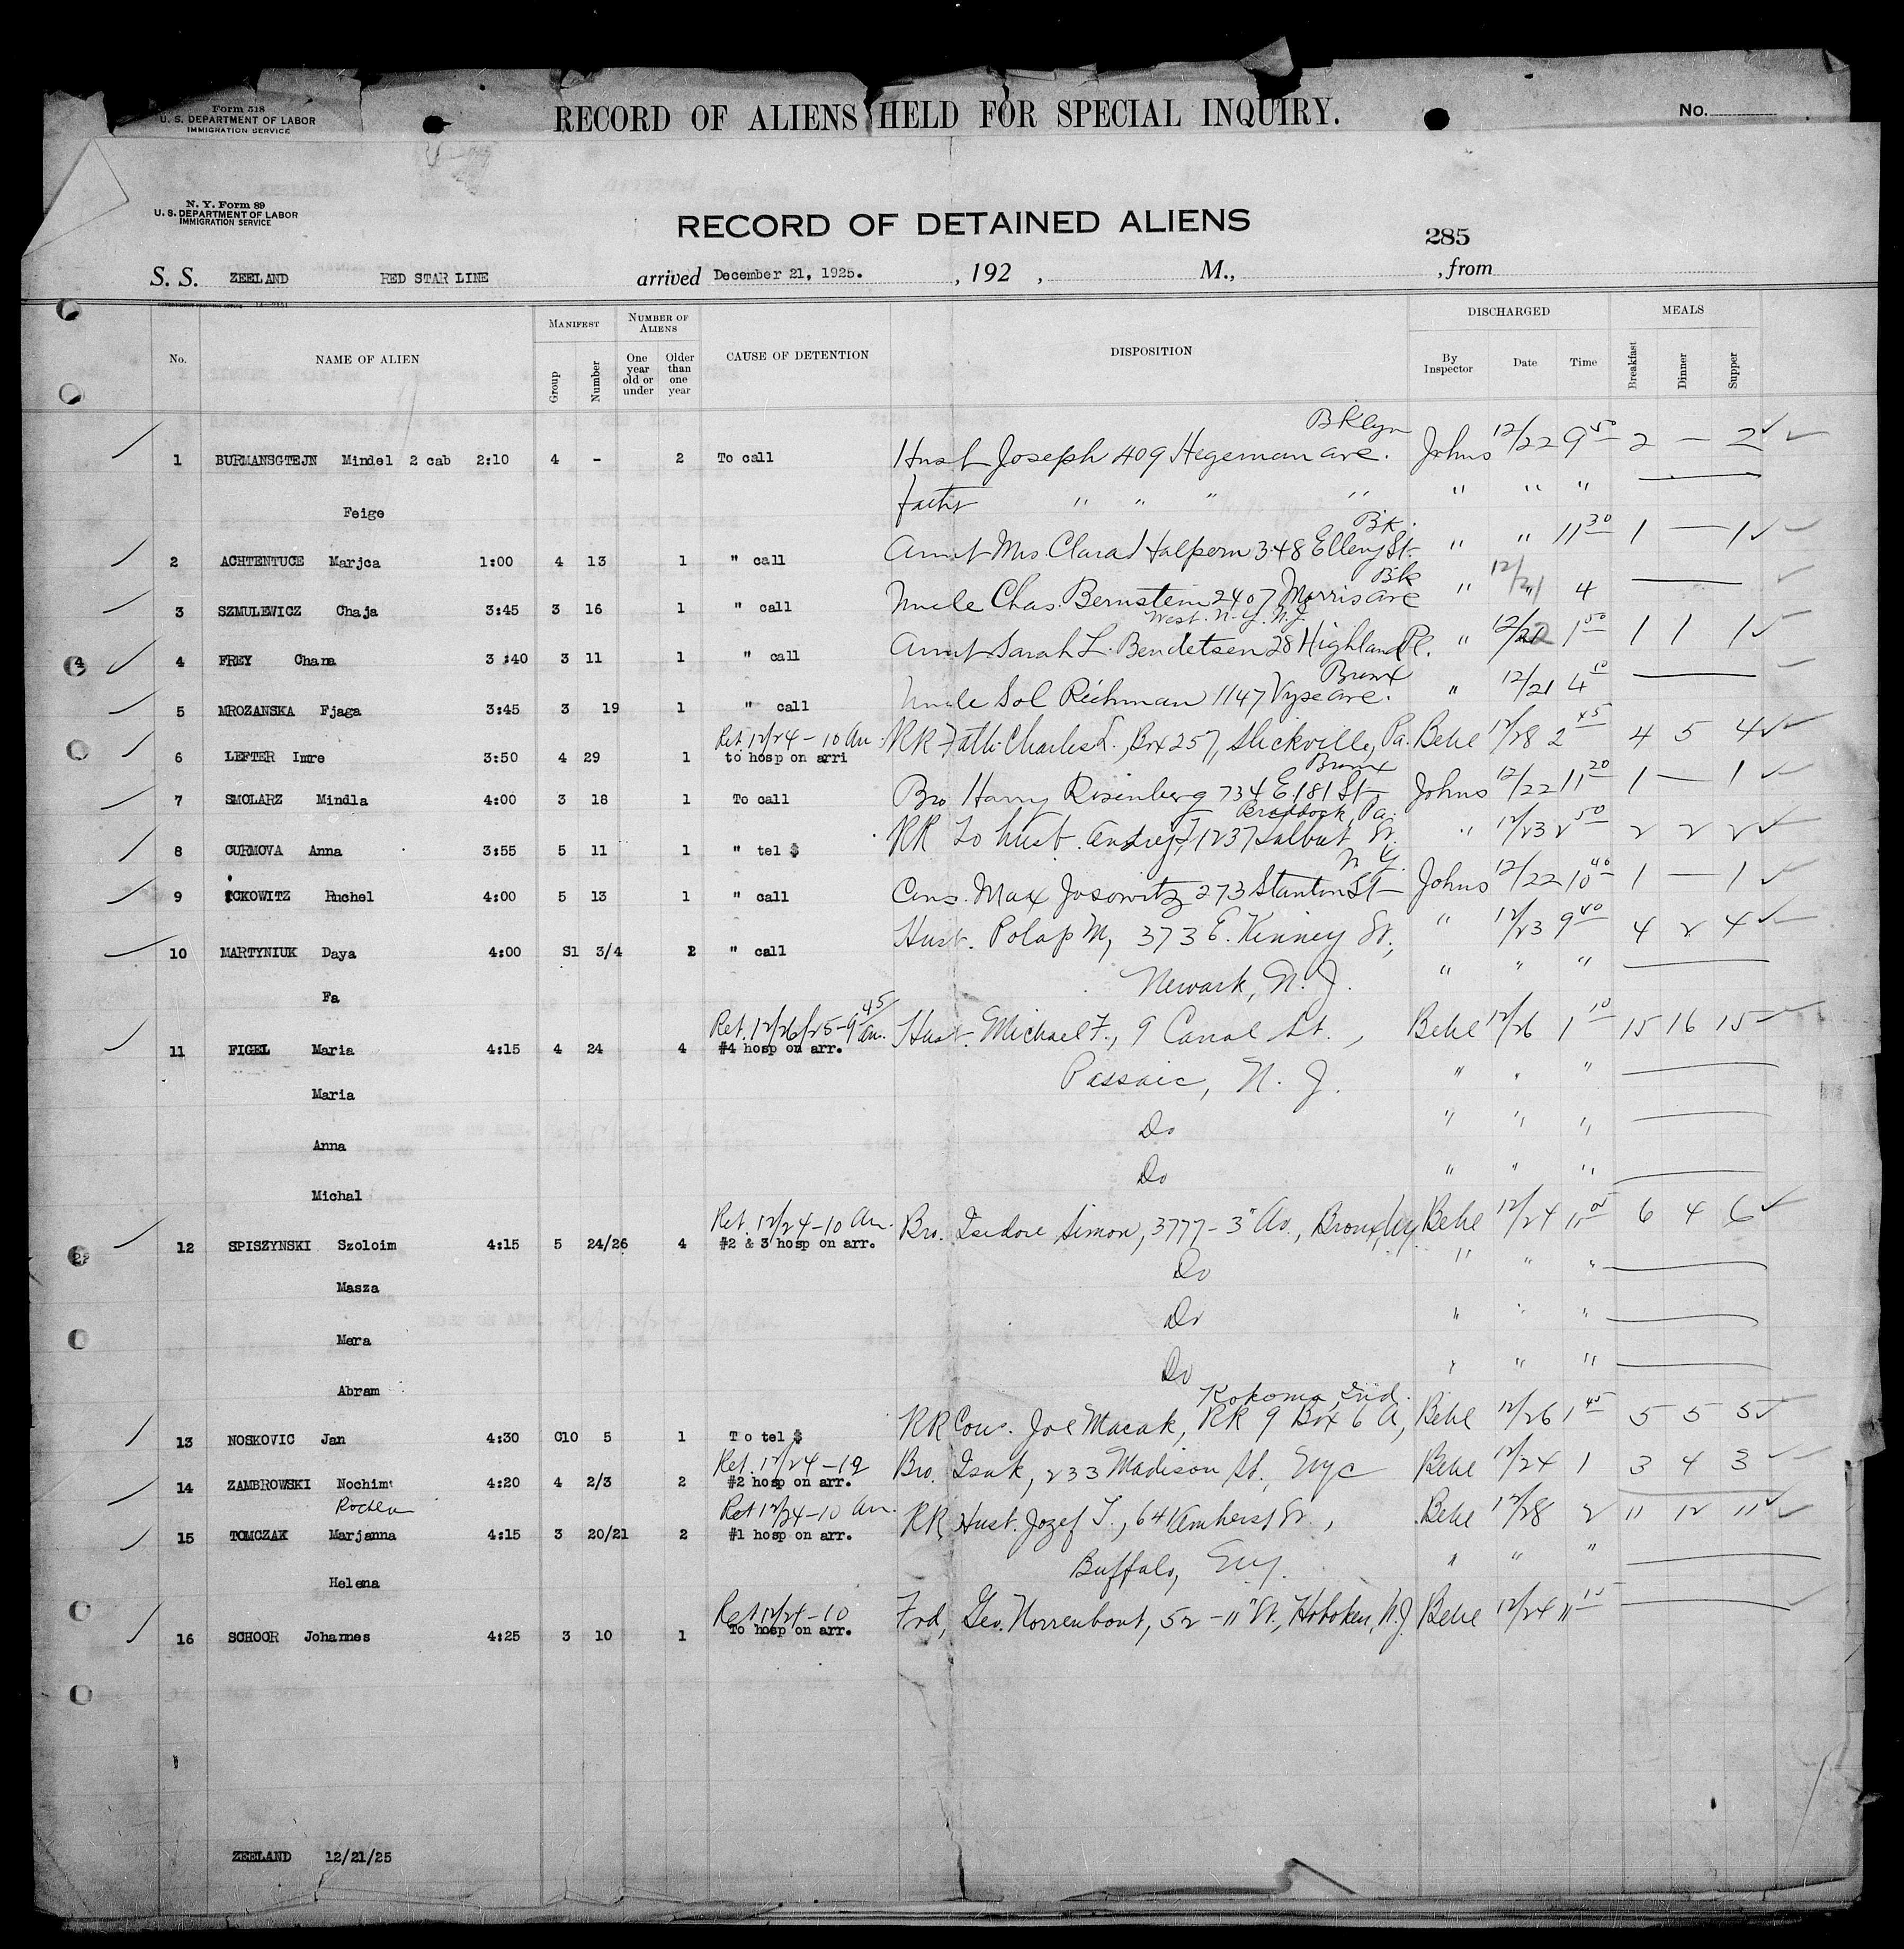 Form 518
U. S. DEPARTMENT OF LABOR
IMMIGRATION SERVICE
RECORD OF ALIENS HELD FOR SPECIAL INQUIRY.
No.
N. Y. Form 89
U. S. DEPARTMENT OF LABOR
IMMIGRATION SERVICE
RECORD OF DETAINED ALIENS
285
S. S. ZEELAND RED STAR LINE arrived December 21, 1925. , 192 , M., , from
No. NAME OF ALIEN MANIFEST Group Number NUMBER OF ALIENS One year old or under Older than one year CAUSE OF DETENTION DISPOSITION DISCHARGED By Inspector Date Time MEALS Breakfast Dinner Supper
Bklyn
1 BURMANSGTEJN Mindel 2 cab 2:10 4 - 2 To call Husb Joseph 409 Hegeman ave. Johns 12/22 9 50 2 — 2
Feige father " " " " " " "
Bk.
2 ACHTENTUCE Marjca 1:00 4 13 1 " call Aunt Mrs. Clara Halpern 348 Ellery St " " 11 30 1 — 1
Bk
3 SZMULEWICZ Chaja 3:45 3 16 1 " call Uncle Chas. Bernstein 2407 Morris ave " 12/21 4
West. N.Y. N.J.
4 FREY Chana 3:40 3 11 1 " call Aunt Sarah L. Bendetsen 28 Highland Pl. " 12/22 1 50 1 1 1
Bronx
5 MROZANSKA Fjaga 3:45 3 19 1 " call Uncle Sol Richman 1147 Vyse ave. " 12/21 4 10
Ret. 12/24 - 10 Am.
6 LEFTER Imre 3:50 4 29 1 to hosp on arri RR Fath. Charles L., Box 257, Slickville, Pa. Behe 12/28 2 45 4 5 4
Bronx
7 SMOLARZ Mindla 4:00 3 18 1 To call Bro Harry Risenberg 734 E. 181 St Johns 12/22 11 20 1 — 1
Braddock, Pa.
8 CURMOVA Anna 3:55 5 11 1 " tel $ RR to husb. 1237 Talbut St. " 12/23 2 50 2 2 2
N Y.
9 ICKOWITZ Ruchel 4:00 5 13 1 " call Cous. Max Josowitz 273 Stanton St Johns 12/22 10 40 1 — 1
10 MARTYNIUK Daya 4:00 S1 3/4 2 " call Husb. Polap M, 373 E. Kinney St., " 12/23 9 40 4 2 4
Fa Newark, N. J. " " "
Ret. 12/26/25 - 9 45 am.
11 FIGEL Maria 4:15 4 24 4 #4 hosp on arr. Husb. Michael F., 9 Canal St., Behe 12/26 1 10 15 16 15
Maria Passaic, N. J. " " "
Anna Do " " "
Michal Do " " "
Ret. 12/24 - 10 Am.
12 SPISZYNSKI Szoloim 4:15 5 24/26 4 #2 & 3 hosp on arr. Bro. Isidore Simon, 3777 - 3" Av., Bronx, Ny Behe 12/24 11 05 6 4 6
Masza Do " " "
Mera Do " " "
Abram Do " " "
Kokomo, Ind.
13 NOSKOVIC Jan 4:30 C10 5 1 To tel $ RR Cou. Joe Macak, RR 9 Box 6 A, Behe 12/26 1 45 5 5 5
Ret. 12/24 - 12
14 ZAMBROWSKI Nochim 4:20 4 2/3 2 #2 hosp on arr. Bro. Isak, 233 Madison St., Nyc Behe 12/24 1 3 4 3
Rochla
Ret 12/24 - 10 Am.
15 TOMCZAK Marjanna 4:15 3 20/21 2 #1 hosp on arr. RR Husb. Jozef T., 64 Amherst St., Behe 12/28 2 11 12 11
Helena Buffalo, Ny. " " "
Ret 12/24 - 10
16 SCHOOR Johannes 4:25 3 10 1 To hosp on arr. Frd, Geo. Norrenbout, 52 - 11" St., Hoboken, N.J. Behe 12/24 11 15
ZEELAND 12/21/25